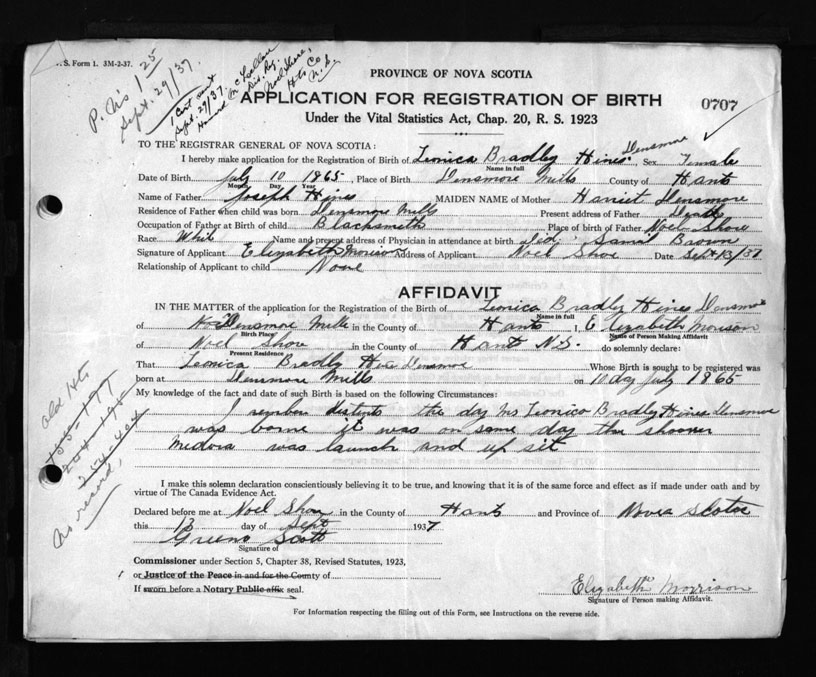 V. S. Form 1. 3M-2-37.
P. N's 1 25
Sept. 29/37.
Sept. 29/37.
Noel Shore,
Hts Co
N.S.
PROVINCE OF NOVA SCOTIA
APPLICATION FOR REGISTRATION OF BIRTH 0707
Under the Vital Statistics Act, Chap. 20, R. S. 1923
TO THE REGISTRAR GENERAL OF NOVA SCOTIA:
I hereby make application for the Registration of Birth of Leonica Bradley Hines Densmore Sex Female
Name in full
Date of Birth July 10 1865, Place of Birth Densmore Mills County of Hants
Month Day Year
Name of Father Joseph Hines MAIDEN NAME of Mother Harriet Densmore
Residence of Father when child was born Densmore Mills Present address of Father Death
Occupation of Father at Birth of child Blacksmith Place of birth of Father Noel Shore
Race White Name and present address of Physician in attendance at birth Died Saml Brown
Signature of Applicant Elizabeth Morison Address of Applicant Noel Shore Date Sept 13/37
Relationship of Applicant to child None
AFFIDAVIT
IN THE MATTER of the application for the Registration of the Birth of Leonica Bradley Hines Densmore
Name in full
of Densmore Mills in the County of Hants I, Elizabeth Morison
Birth Place Name of Person Making Affidavit
of Noel Shore in the County of Hant N.S. do solemnly declare:
Present Residence
That Leonica Bradley Hines Densmore Whose Birth is sought to be registered was
born at Densmore Mills on 10 day July 1865
My knowledge of the fact and date of such Birth is based on the following Circumstances:
I the day Ms Leonico Bradley Hines Densmore
was borne it was on same day the shooner
Medora was launch and up sit
Old Hts
155-197
254-195
254-404
No record,
I make this solemn declaration conscientiously believing it to be true, and knowing that it is of the same force and effect as if made under oath and by
virtue of The Canada Evidence Act.
Declared before me at Noel Shore in the County of Hants and Province of Nova Scotia
this 13 day of Sept 1937
Greeno Scott
Signature of
Commissioner under Section 5, Chapter 38, Revised Statutes, 1923,
or Justice of the Peace in and for the County of
If sworn before a Notary Public affix seal.
Elizabeth Morrison
Signature of Person making Affidavit.
For Information respecting the filling out of this Form, see Instructions on the reverse side.